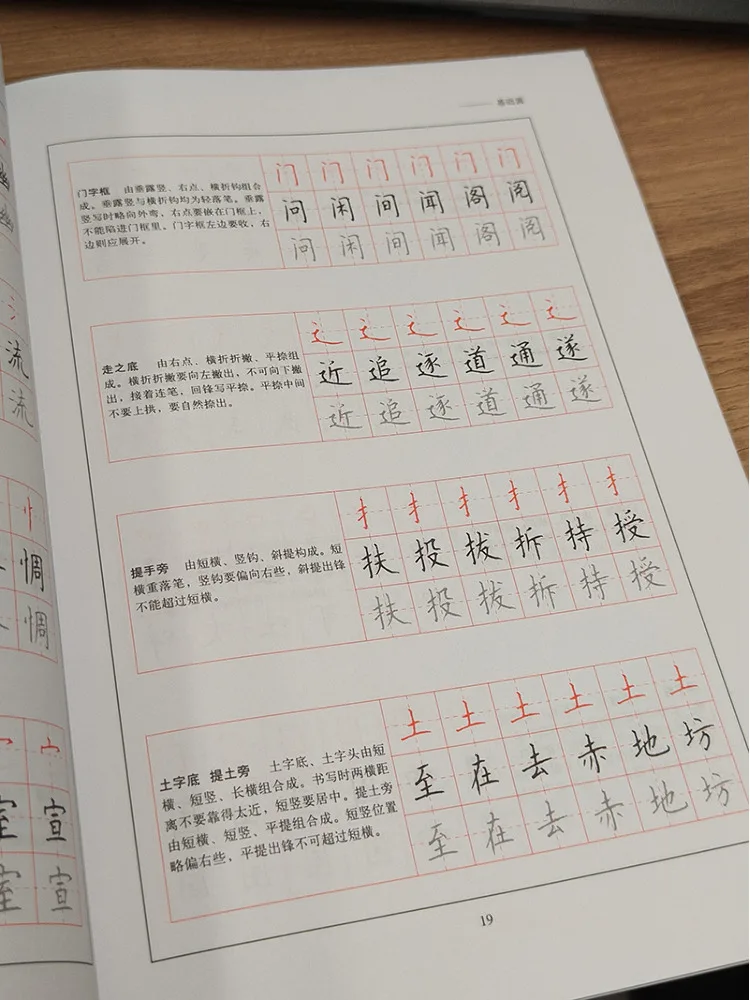 基础篇
门 门 门 门 门 门
门字框 由垂露竖、右点、横折钩组合
成。垂露竖与横折钩均为轻落笔。垂露
竖写时略向外弯，右点要嵌在门框上，
不能陷进门框里。门字框左边要收，右
边则应展开。
问 闲 间 闻 阁 阅
问 闲 间 闻 阁 阅
辶 辶 辶 辶 辶 辶
走之底 由右点、横折折撇、平捺组
成。横折折撇要向左撇出，不可向下撇
出，接着连笔，回锋写平捺。平捺中间
不要上拱，要自然捺出。
近 追 逐 道 通 遂
近 追 逐 道 通 遂
扌 扌 扌 扌 扌 扌
提手旁 由短横、竖钩、斜提构成。短
横重落笔，竖钩要偏向右些，斜提出锋
不能超过短横。
扶 投 拔 拆 持 授
扶 投 拔 拆 持 授
土 土 土 土 土 土
土字底 提土旁 土字底、土字头由短
横、短竖、长横组合成。书写时两横距
离不要靠得太近，短竖要居中。提土旁
由短横、短竖、平提组合成。短竖位置
略偏右些，平提出锋不可超过短横。
至 在 去 赤 地 坊
至 在 去 赤 地 坊
19
幽
幽
氵
流
流
忄
惆
惆
宀 宀
室 宣
室 宣